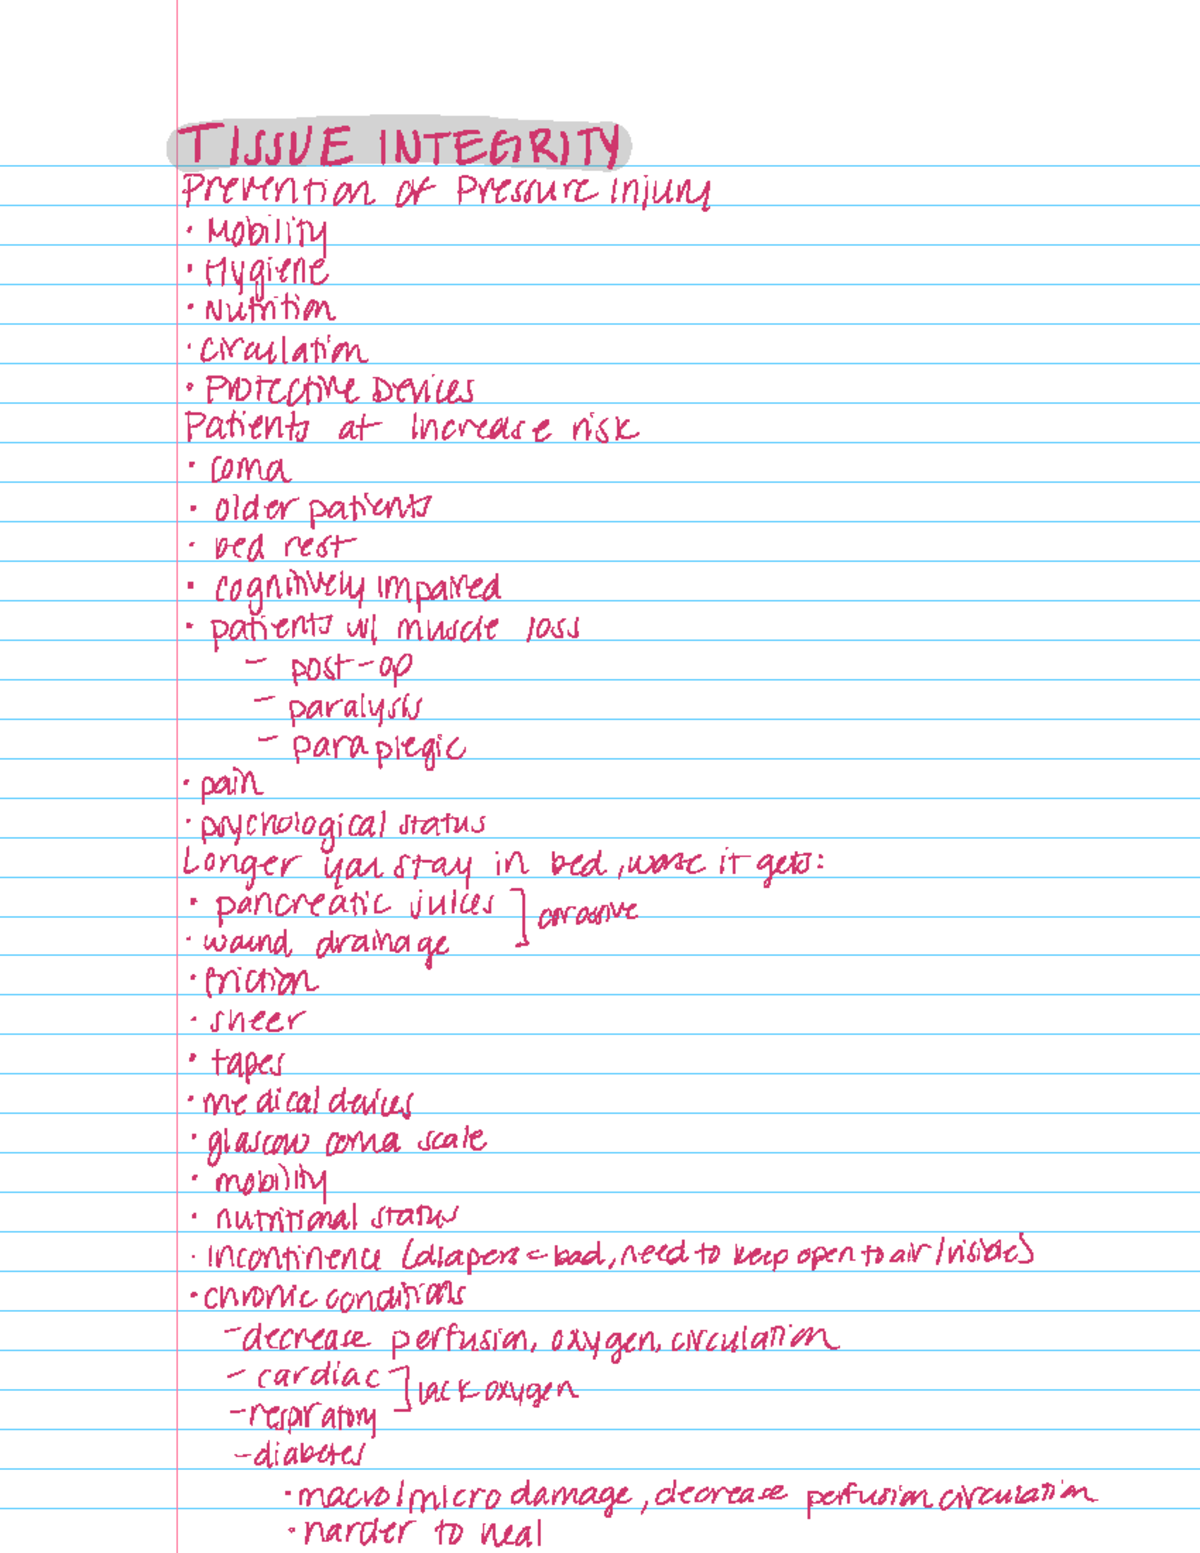 TISSUE INTEGRITY
Prevention of Pressure Injury
• Mobility
• Hygiene
• Nutrition
• Circulation
• Protective Devices
Patients at increase risk
• coma
• older patients
• bed rest
• cognitively impaired
• patients w/ muscle loss
– post-op
– paralysis
– paraplegic
• pain
• psychological status
Longer you stay in bed, worse it gets:
• pancreatic juices ] corrosive
• wound drainage
• friction
• sheer
• tapes
• medical devices
• glascow coma scale
• mobility
• nutritional status
• Incontinence (diapers = bad, need to keep open to air/visible)
• chronic conditions
– decrease perfusion, oxygen, circulation
– cardiac ] lack oxygen
– respiratory
– diabetes
• macro/micro damage, decrease perfusion circulation
• harder to heal